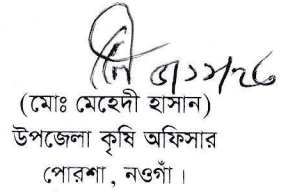 (মোঃ মেহেদী হাসান)
উপজেলা কৃষি অফিসার
পোরশা, নওগাঁ।